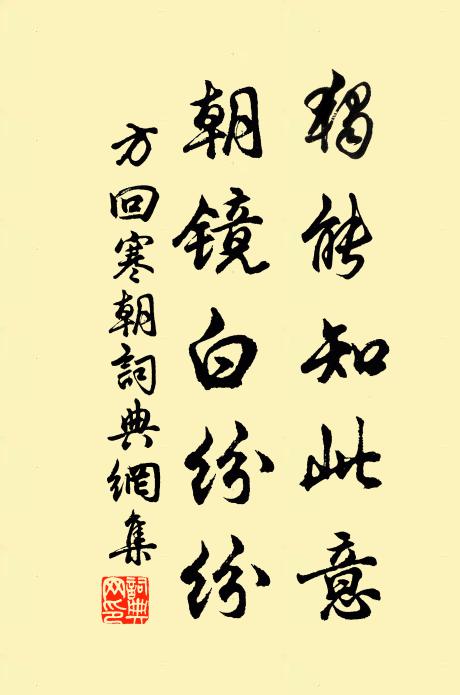 獨能知此意
朝镜白纷纷
方回寒朝詞典網集
詞典网印